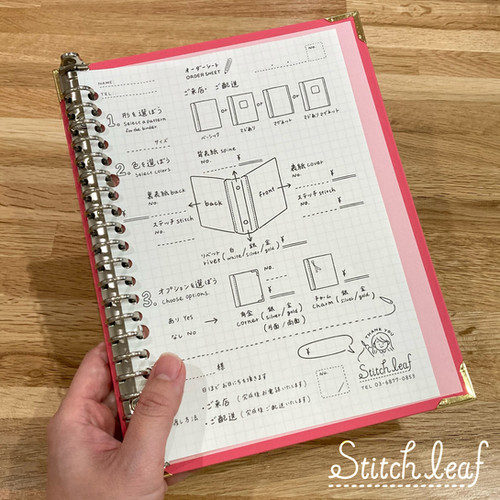 NAME
TEL
オーダーシート
ORDER SHEET
No.
ご来店・ご配送
1. 形を選ぼう
Select a pattern
for the binder
サイズ
or or or
ベーシック
2. 色を選ぼう
Select colors
背表紙 spine
No. ¥
裏表紙 back
No.
ステッチ stitch
No.
表表紙 cover
No.
ステッチ stitch
No.
back
front
リベット 白 銀 金
rivet (white/silver/gold) ¥
3. オプションを選ぼう
choose options
あり Yes
なし No
No.
¥
角金 銀 金
corner (silver/gold)
チャーム 銀 金
charm (silver/gold)
¥
様
¥
THANK YOU
Stitch leaf
TEL 03-6877-0853
・ご来店
・ご配送
Stitch leaf